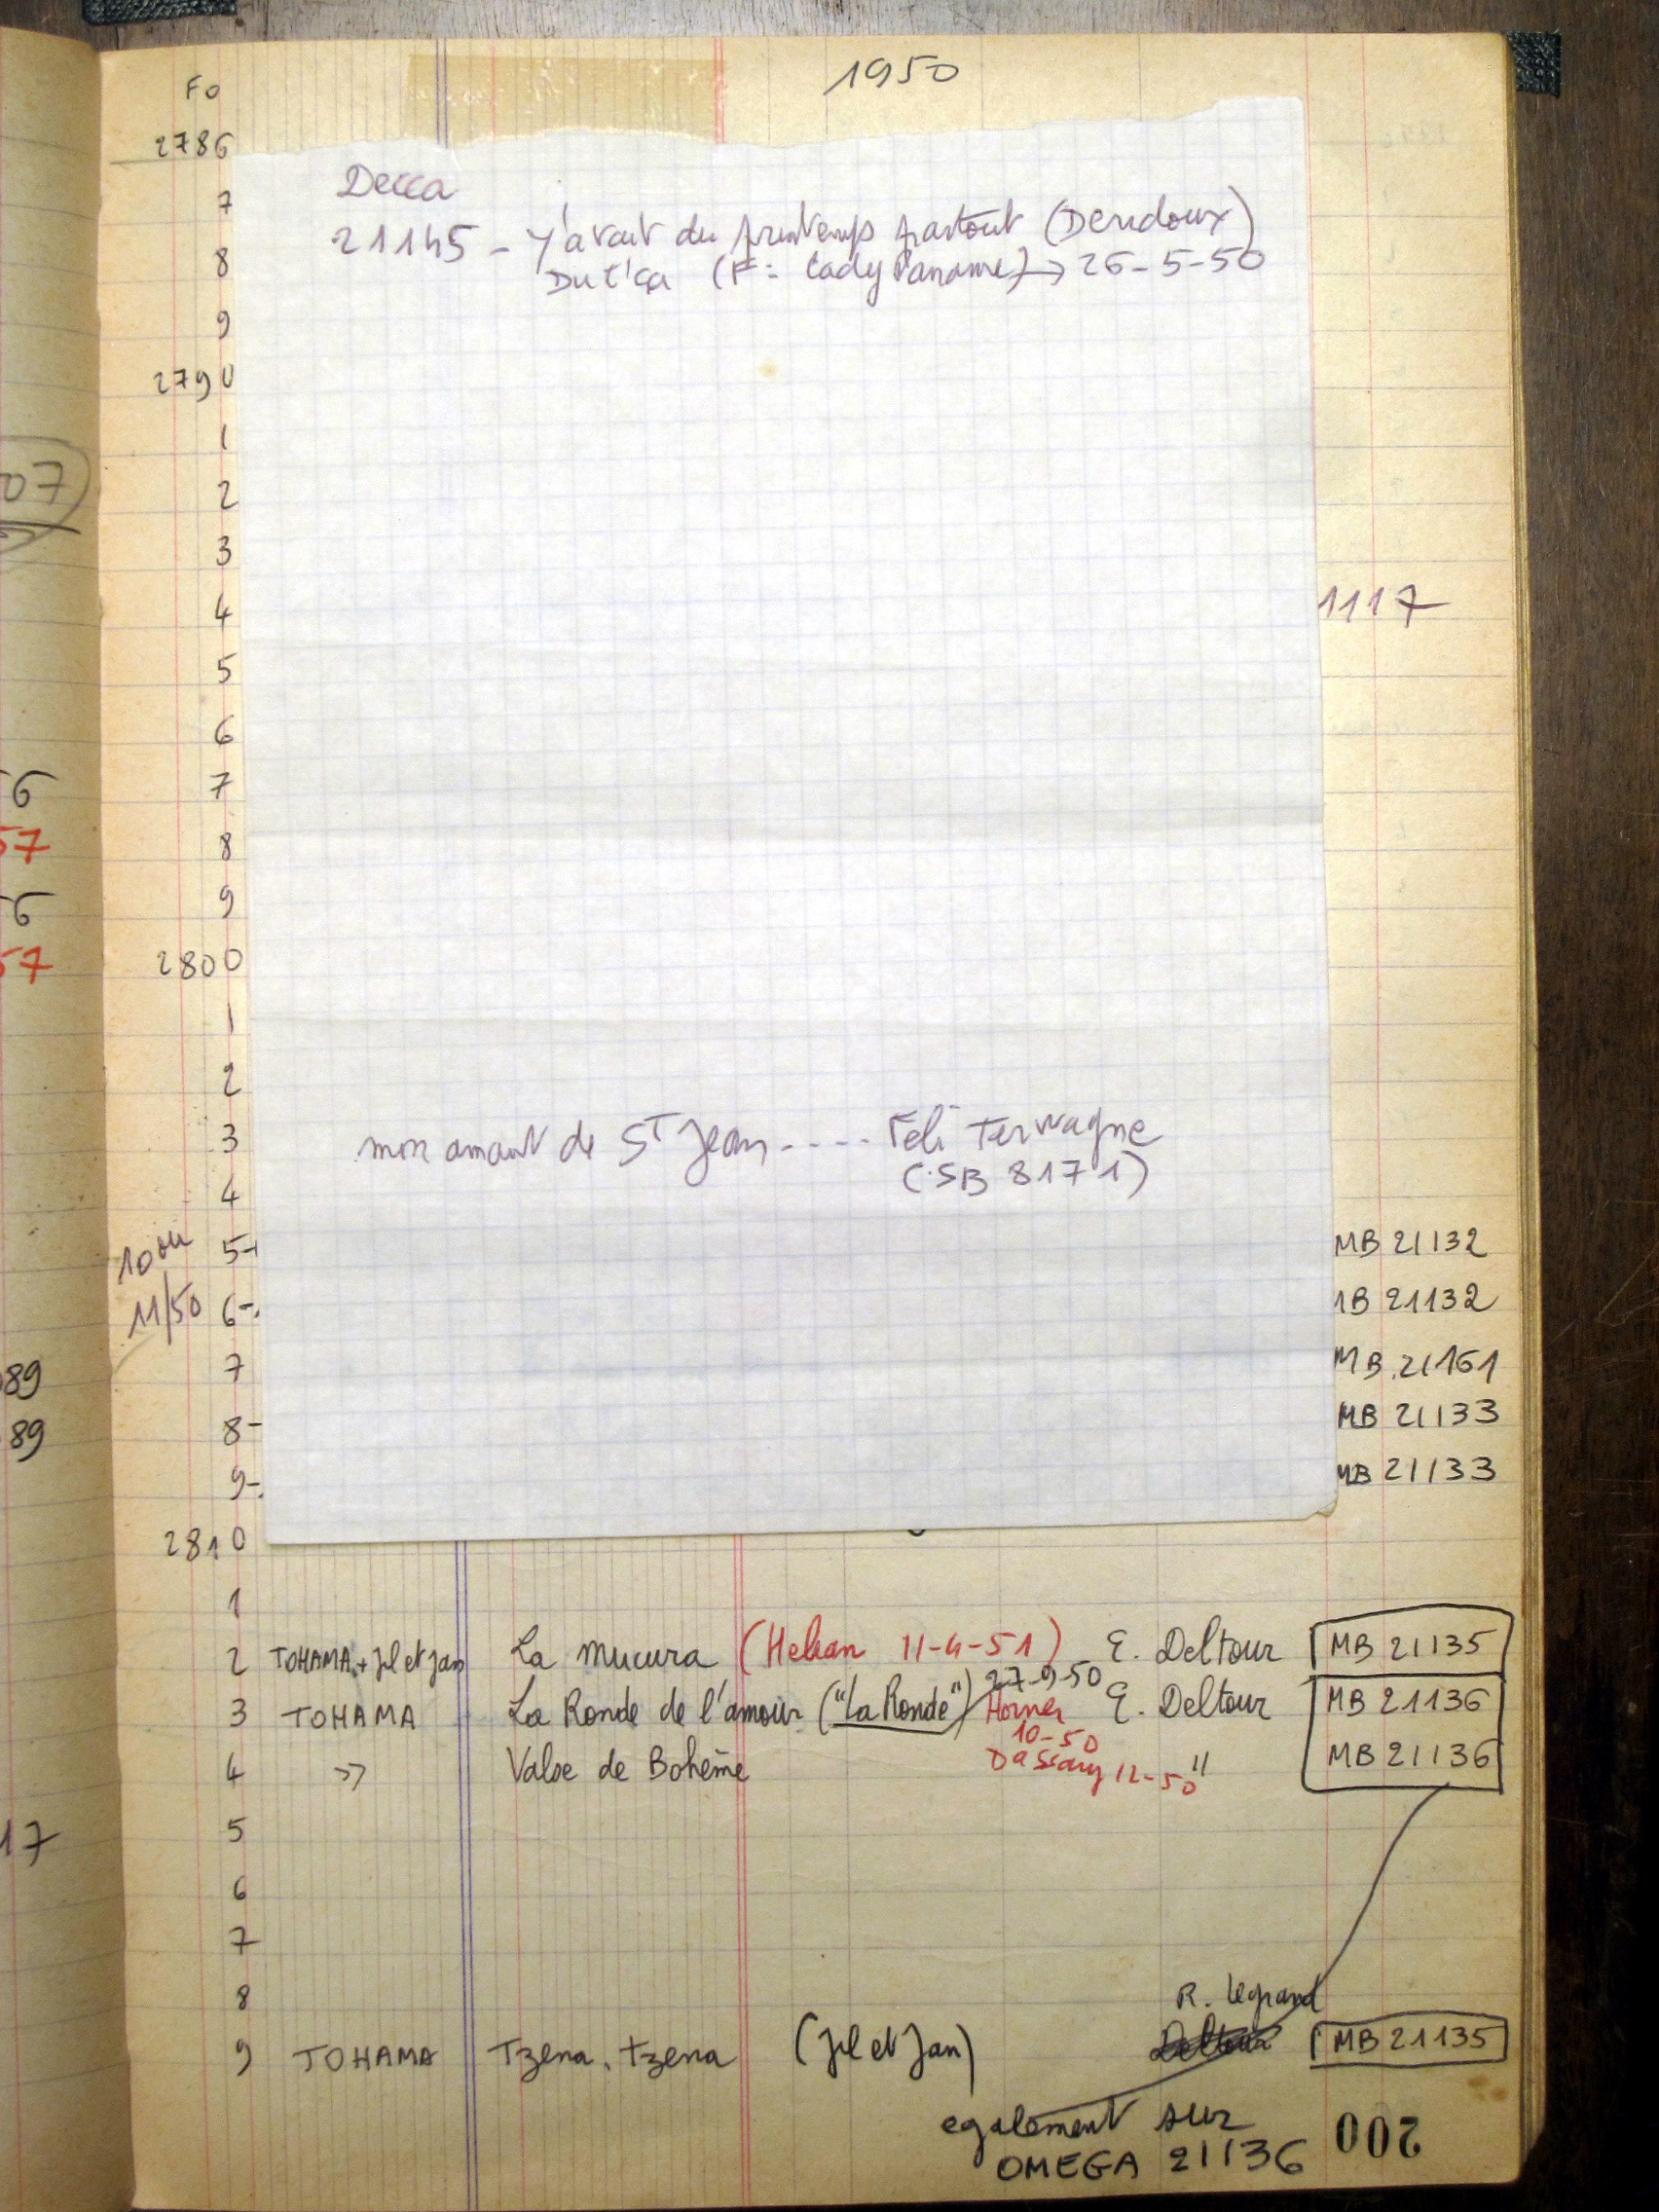 1950
Fo
2786
Decca
7
21145 - Y'avait du printemps partout (Deridoux)
8
Du t'ça (F: Lady Paname) → 26-5-50
9
2790
1
07
2
3
4 1117
5
6
7
6
8
57
9
6
2800
57
1
2
3 mon amant de St Jean ---- Féli Terwagne
4 (SB 8171)
10 ou 5- MB 21132
11/50 6- MB 21132
7 MB 21161
89
8- MB 21133
89
9- MB 21133
2810
1
2 TOHAMA + Jil et Jan La Mucura (Helian 11-4-51) E. Deltour MB 21135
27-9-50
3 TOHAMA La Ronde de l'amour ("La Ronde") Horner E. Deltour MB 21136
10-50
4 » Valse de Bohême Dassary 12-50 " MB 21136
5
17
6
7
8 R. Legrand
9 TOHAMA Tzena, tzena (Jil et Jan) Deltour MB 21135
egalement sur
OMEGA 21136
200